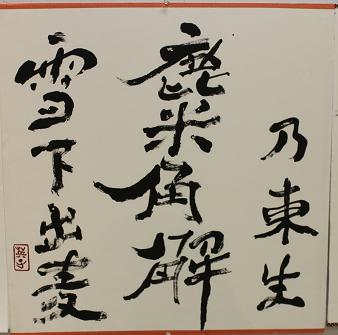 乃東生
麋角解
雪下出麦